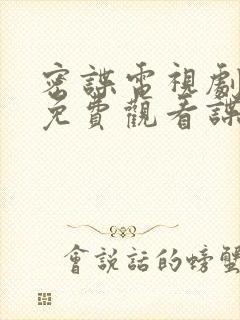 密諜電視劇
免費觀看諜
會說話的螃蟹